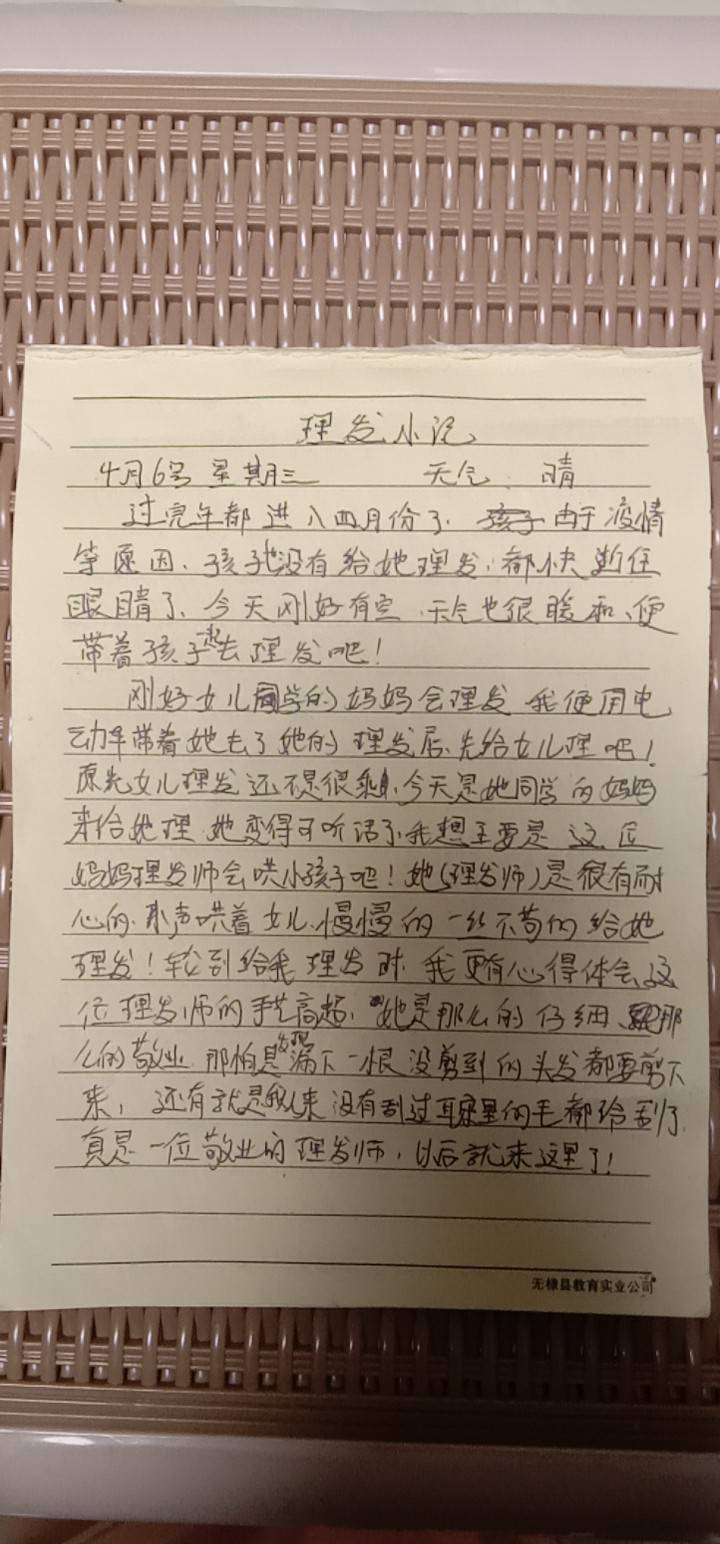 理发小记
4月6号 星期三 天气:晴
过完年都进入四月份了、由于疫情
等原因、孩子也没有给她理发、都快断住
眼睛了、今天刚好有空、天气也很暖和、便
带着孩子一起去理发吧!
刚好女儿同学的妈妈会理发 我便用电
动车带着她去了她的理发店、先给女儿理吧!
原先女儿理发还不是很乖、今天是她同学的妈妈
来给她理 她变得可听话了、我想主要是这位
妈妈理发师会哄小孩子吧!她(理发师)是很有耐
心的、声哄着女儿、慢慢的一丝不苟的给她
理发!轮到给我理发时、我更有心得体会、这
位理发师的手艺高超、她是那么的仔细、那
么的敬业 那怕是发现漏下一根没剪到的头发都要剪下
来,还有就是我从来没有刮过耳朵里的毛都给刮了
真是一位敬业的理发师,以后就来这里了!
无棣县教育实业公司